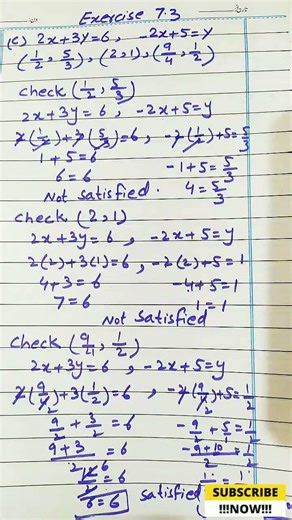 Exercise 7.3
(c) 2x+3y=6, -2x+5=y
(1/2, 5/3), (2,1), (9/4, 1/2)
check (1/2, 5/3)
2x+3y=6, -2x+5=y
2(1/2)+3(5/3)=6, -2(1/2)+5=5/3
1+5=6
-1+5=5/3
6=6
4=5/3
Not satisfied.
check (2,1)
2x+3y=6, -2x+5=y
2(2)+3(1)=6, -2(2)+5=1
4+3=6
-4+5=1
7=6
1=1
Not satisfied
check (9/4, 1/2)
2x+3y=6, -2x+5=y
2(9/4)+3(1/2)=6, -2(9/4)+5=1/2
9/2+3/2=6
-9/2+5/1=1/2
9+3/2=6
-9+10/2=1/2
12/2=6
6=6
satisfied
SUBSCRIBE
!!!NOW!!!